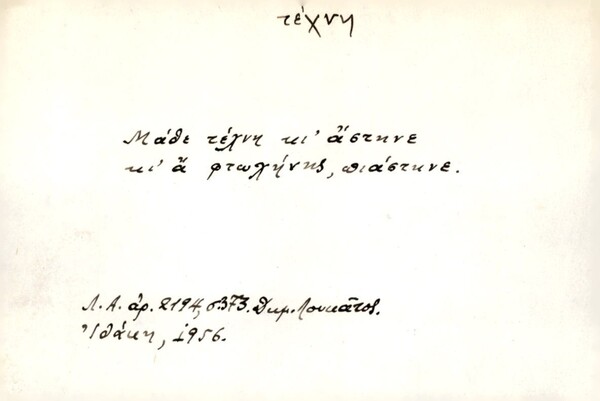 τέχνη
Μάθε τέχνη κι' ἄστηνε
κι' ἄ φτωχήνης, πιάστηνε.
Λ. Α. ἀρ. 2194, σ373. Δημ. Λουκᾶτος.
Ἰθάκη, 1956.